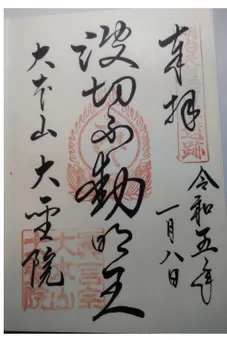 奉拝
令和五年
一月八日
波切不動明王
大本山大聖院